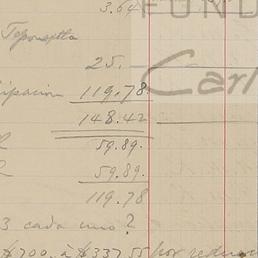 3.64
FUND
25.-
Carl
119.78
148.42
59.89.
59.89.
119.78
3 cada uno?
$700. à $337.55 por